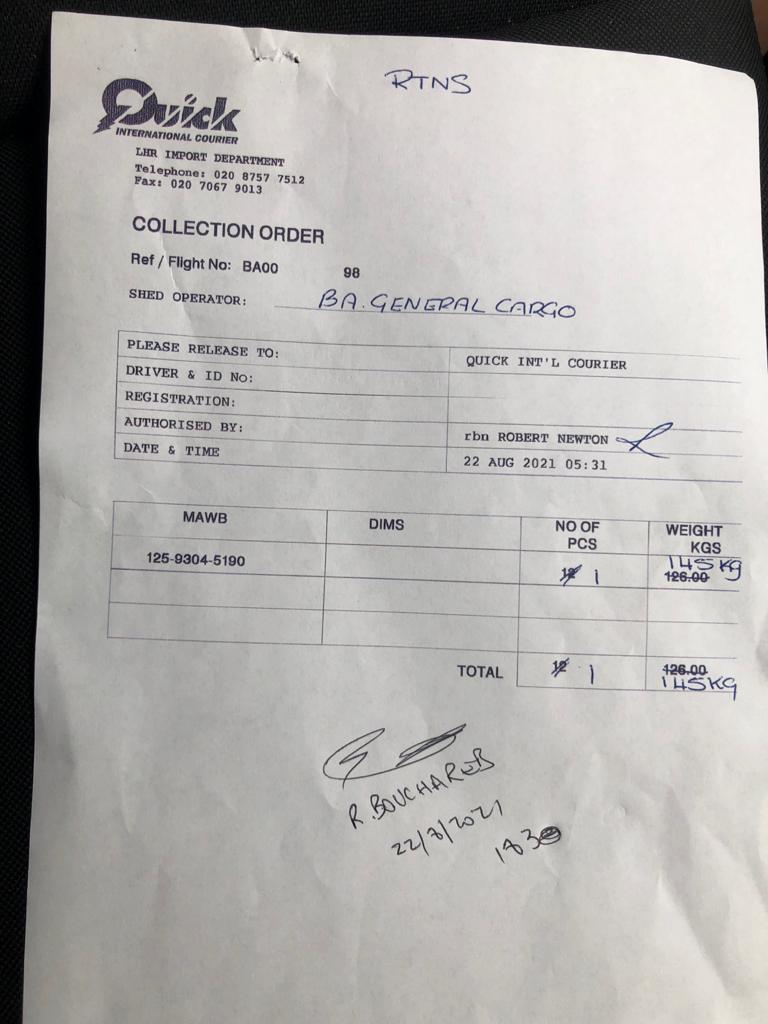 RTNS
Quick
INTERNATIONAL COURIER
LHR IMPORT DEPARTMENT
Telephone: 020 8757 7512
Fax: 020 7067 9013
COLLECTION ORDER
Ref / Flight No: BA00 98
SHED OPERATOR: BA. GENERAL CARGO
PLEASE RELEASE TO: QUICK INT'L COURIER
DRIVER & ID No:
REGISTRATION:
AUTHORISED BY: rbn ROBERT NEWTON
DATE & TIME 22 AUG 2021 05:31
MAWB DIMS NO OF PCS WEIGHT KGS
145KG
125-9304-5190 12 1 126.00
TOTAL 12 1 126.00
145KG
R. BOUCHAREB
22/8/2021
1830